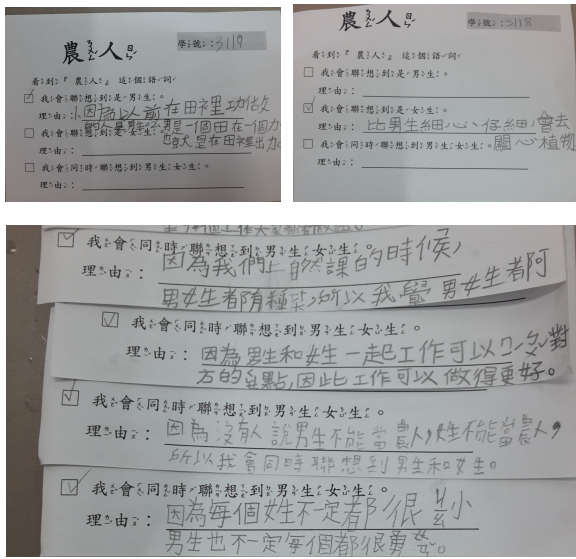 農人
學號:3119
看到『農人』這個語詞
我會聯想到是男生。
理由:因為以前在田裡工作
的人是男生。男是一個田在一個力
也就是在田裡出力。
我會聯想到是女生。
理由:
我會同時聯想到男生女生。
理由:
農人
學號:3118
看到『農人』這個語詞
我會聯想到是男生。
理由:
我會聯想到是女生。
理由:比男生細心、仔細,會去
關心植物
我會同時聯想到男生女生。
理由:
我會同時聯想到男生女生。
理由:因為我們上自然課的時候,
男女生都有種菜,所以我覺男女生都阿
我會同時聯想到男生女生。
理由:因為男生和女生一起工作可以ㄅㄨˇ對
方的缺點,因此工作可以做得更好。
我會同時聯想到男生女生。
理由:因為沒有人說男生不能當農人,女生不能當農人,
所以我會同時聯想到男生和女生。
我會同時聯想到男生女生。
理由:因為每個女生不一定都很ㄐㄧㄠ小
男生也不一定每個都很勇